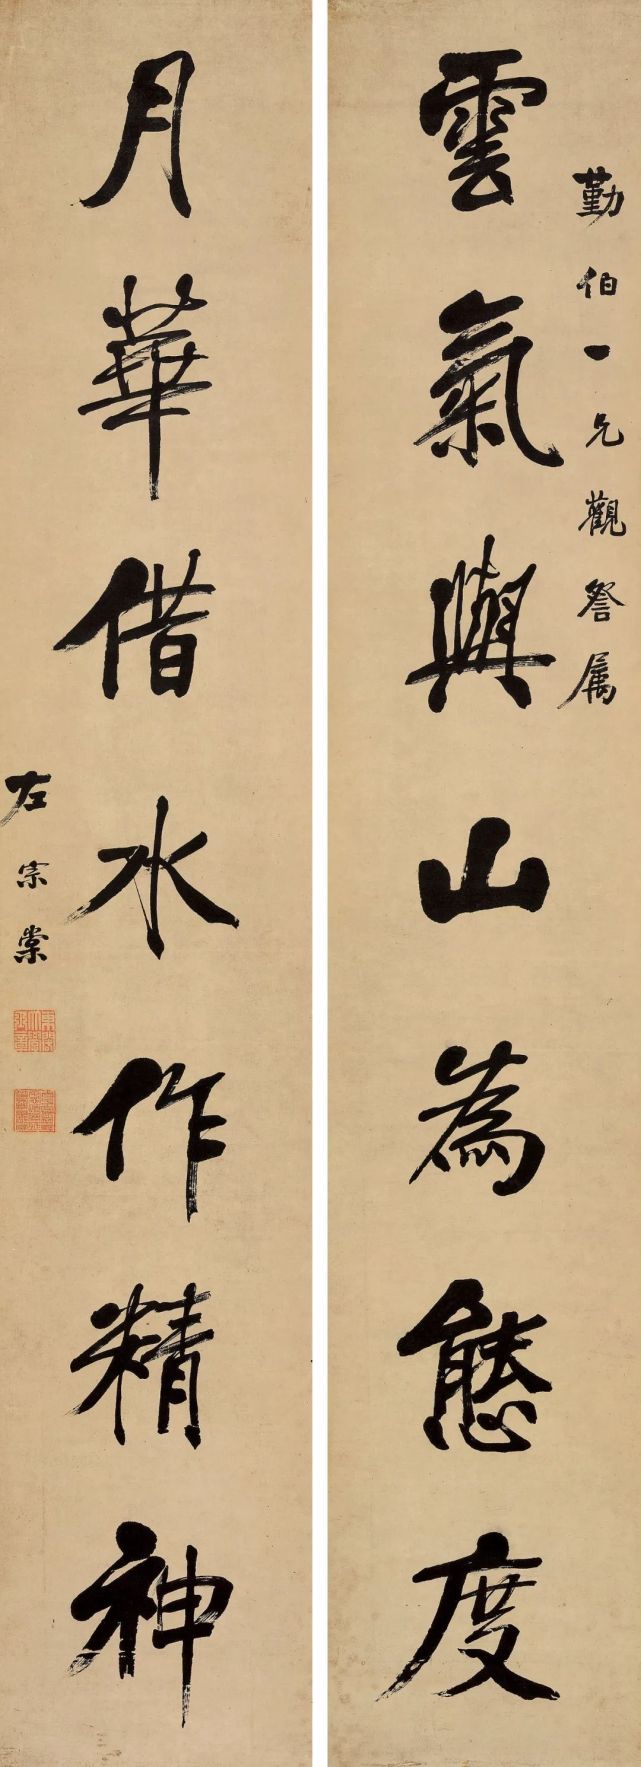 勤伯一兄觀詧属
雲氣與山為態度
月華借水作精神
左宗棠